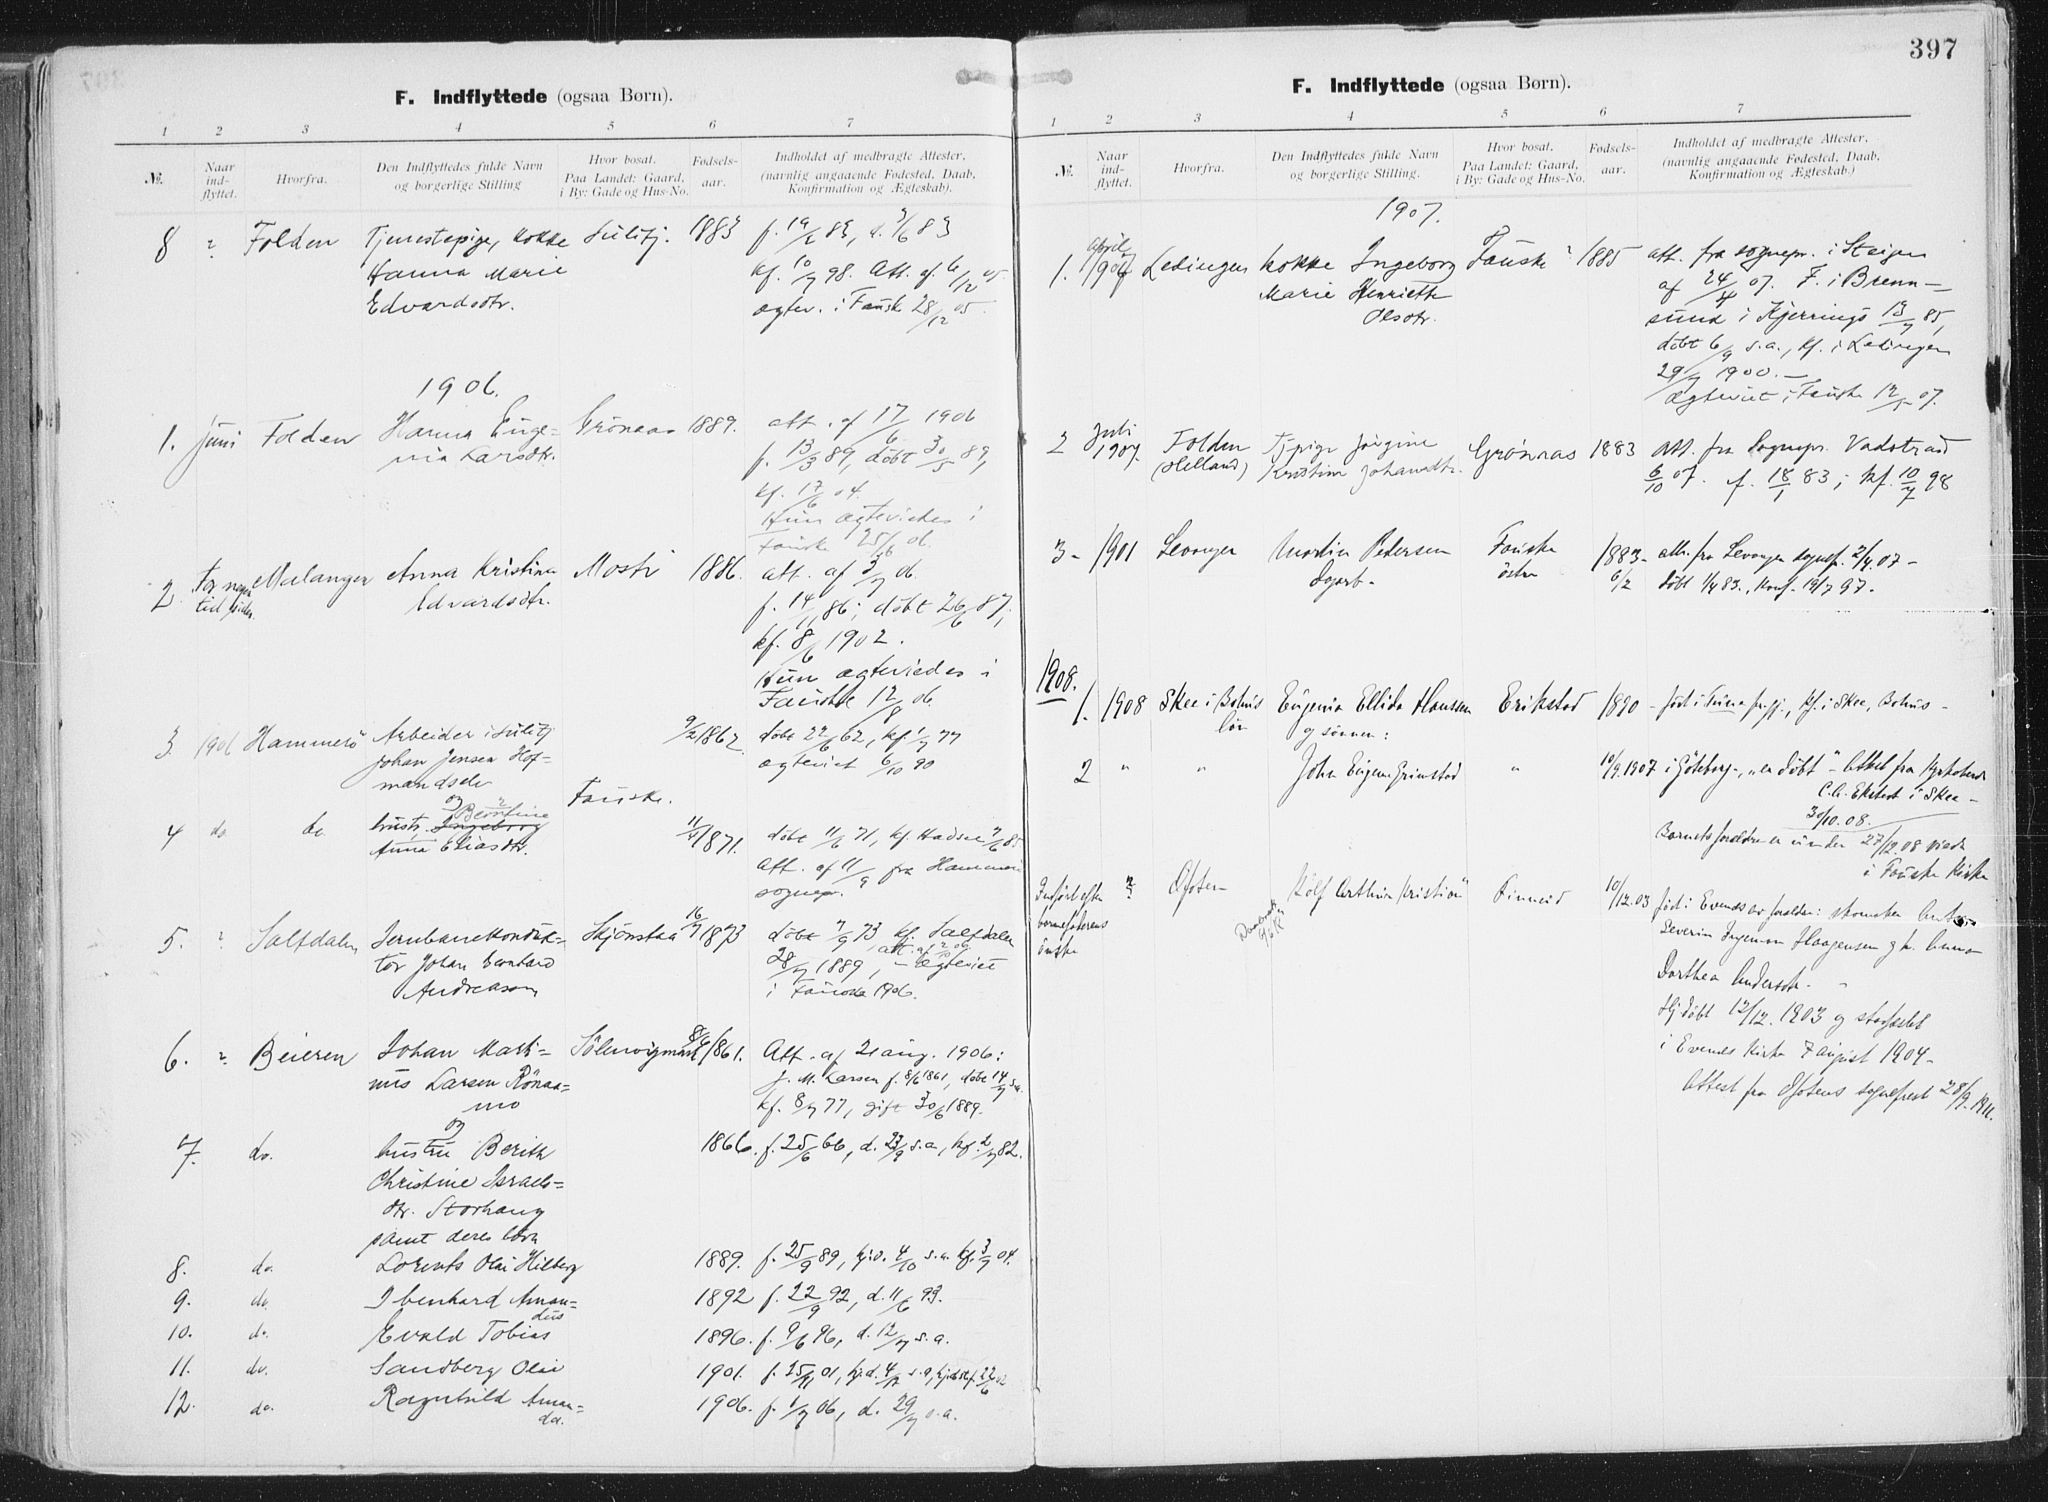 F. Indflyttede (ogsaa Børn).
1 2 3 4 5 6 7
№. Naar ind-flyttet. Hvorfra. Den Indflyttedes fulde Navn og borgerlige Stilling Hvor bosat. Paa Landet: Gaard, i By: Gade og Hus-No. Fødsels-aar. Indholdet af medbragte Attester, (navnlig angaaende Fødested, Daab, Konfirmation og Ægteskab).
8 " Folden Tjenestepige, kokke Sulitj. 1883 f. 19/2 83, d. 3/6 83
Hanna Marie kf. 10/7 98. Att. af 6/12 05.
Edvardsdtr. ægtev. i Fauske 28/12 05.
1906.
1. juni Folden Hanna Euge= Grönaas 1889. att. af 17/6 1906
nia Larsdtr. f. 13/3 89, döbt 30/5 89,
kf. 17/6 04.
Hun ægteviedes i
Fauske 25/6 06.
2. for nogen tid siden Malangen Anna Kristina Mosti 1886. att. af 3/7 06.
Edvardsdtr. f. 14/11 86; döbt 26/6 87,
kf. 8/6 1902.
Hun ægteviedes i
Fauske 12/8 06
3. 1906 Hammerö Arbeider i Sulitj. 9/2 1862. döbt 22/6 62, kf. 1/7 77
Johan Jensen Hof= ægteviet 6/10 90
mandselv
og Fauske.
4 do do hustr. Ingeborg Berntine 11/4 1871. döbt 11/6 71, kf. Hadsel 7/6 85
Anna Eliasdtr. Att. af 11/9 fra Hammerö
sognepr.
5. " Saltdalen Jernbanekonduk= Skjönstaa 16/7 1873 döbt 7/9 73, kf. Saltdalen
tör Johan Bernhard 28/7 1889, – ægteviet
Andreasen i Fauske 1906.
6. " Beieren Johan Marti= 8/6 1861. Att. af 21 aug. 1906:
nus Larsen Rönaa= J. M. Larsen f. 8/6 1861, döbt 14/7 s.a.
mo kf. 8/7 77, gift 30/6 1889.
og
7. do. hustru Berith 1866. f. 25/6 66, d. 23/9 s.a, kf. 2/7 82.
Christine Israels=
dtr. Storhaug
samt deres børn
8. do. Lorents Olai Hilberg 1889. f. 25/9 89, hj.d. 4/10 s.a. kf. 3/7 04.
9. do. Ibenhard Aman=dus 1892 f. 22/9 92, d. 11/6 93.
10. do. Evald Tobias 1896. f. 9/6 96, d. 12/7 s.a.
11. do. Sandberg Olai 1901. f. 25/11 01, hj.d. 4/12 s.a,
12. do. Ragnhild Aman=da. 1906. f. 1/7 06, d. 29/7 s.a.
397
F. Indflyttede (ogsaa Børn).
1 2 3 4 5 6 7
№. Naar ind-flyttet. Hvorfra. Den Indflyttedes fulde Navn og borgerlige Stilling. Hvor bosat. Paa Landet: Gaard, i By: Gade og Hus-No. Fødsels-aar. Indholdet af medbragte Attester, (navnlig angaaende Fødested, Daab, Konfirmation og Ægteskab.)
1907.
1. april 1907 Lödingen kokke Ingeborg Fauske 1885 att. fra sognepr. i Steigen
Marie Henriette af 24/4 07. F. i Brenn–
Olsdtr. sund i Kjerringö 13/7 85,
döbt 6/9 s.a., kf. i Lödingen
29/7 1900. –
Ægteviet i Fauske 12/5 07.
2 Juli 1907. Folden (Helland) Tj.pige Jörgine Grönnas 1883 Att. fra Sognepr. Vadstrøð
Kristine Johansdtr. 6/10 07. f. 18/1 83; kf. 10/7 98
3– 1901 Levanger Martin Petersen Fauske östre 1883– 6/2 Att. fra Levanger sognepr. 2/4.07–
döbt 1/4 83., Konf. 19/7 97–
1908.
1. 1908 Skee i Bohuslän Eugenia Elida Hanssen Erikstad 1890 – född i pr.gj., kf. i Skee, Bohus–
og sönnen:
2 " " John Eugen Grimstad " 10/9.1907 i Göteborg–, "er döbt" – Attest fra Kyrkoherde
C.A. Ekstedt i Skee –
30/10.08.
Barnets forældre er under 27/12.08 viede
i Fauske Kirke
Indført efter barnefaderens önske ? Ofoten Rolf Arthur Kristian Finneid 10/12.03 född i Evenes av forældre: skomaker Anton
Severin Ingeman Haagensen og h. Anna
Dorthea Andersdtr. –
Hj.döbt 12/12. 1903 og stadfæstet
i Evenes Kirke 7 august 1904–
Attest fra Ofotens sogneprest 28/9. 1911.